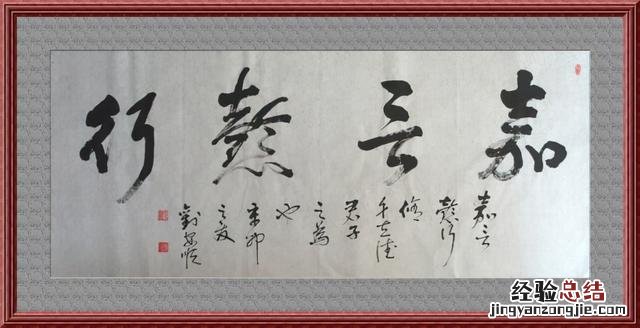 嘉言懿行
嘉言
懿行
修
德
君子
之為
也
辛卯
之夏
經验总结
jingyanzongjie.com